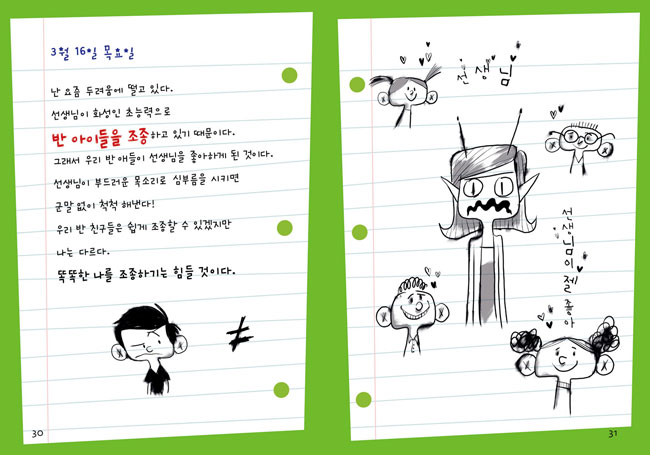 3월 16일 목요일
난 요즘 두려움에 떨고 있다.
선생님이 화성인 초능력으로
반 아이들을 조종하고 있기 때문이다.
그래서 우리 반 애들이 선생님을 좋아하게 된 것이다.
선생님이 부드러운 목소리로 심부름을 시키면
군말 없이 척척 해낸다!
우리 반 친구들은 쉽게 조종할 수 있겠지만
나는 다르다.
똑똑한 나를 조종하기는 힘들 것이다.
≠
30
선생님
선생님이 젤 좋아
31